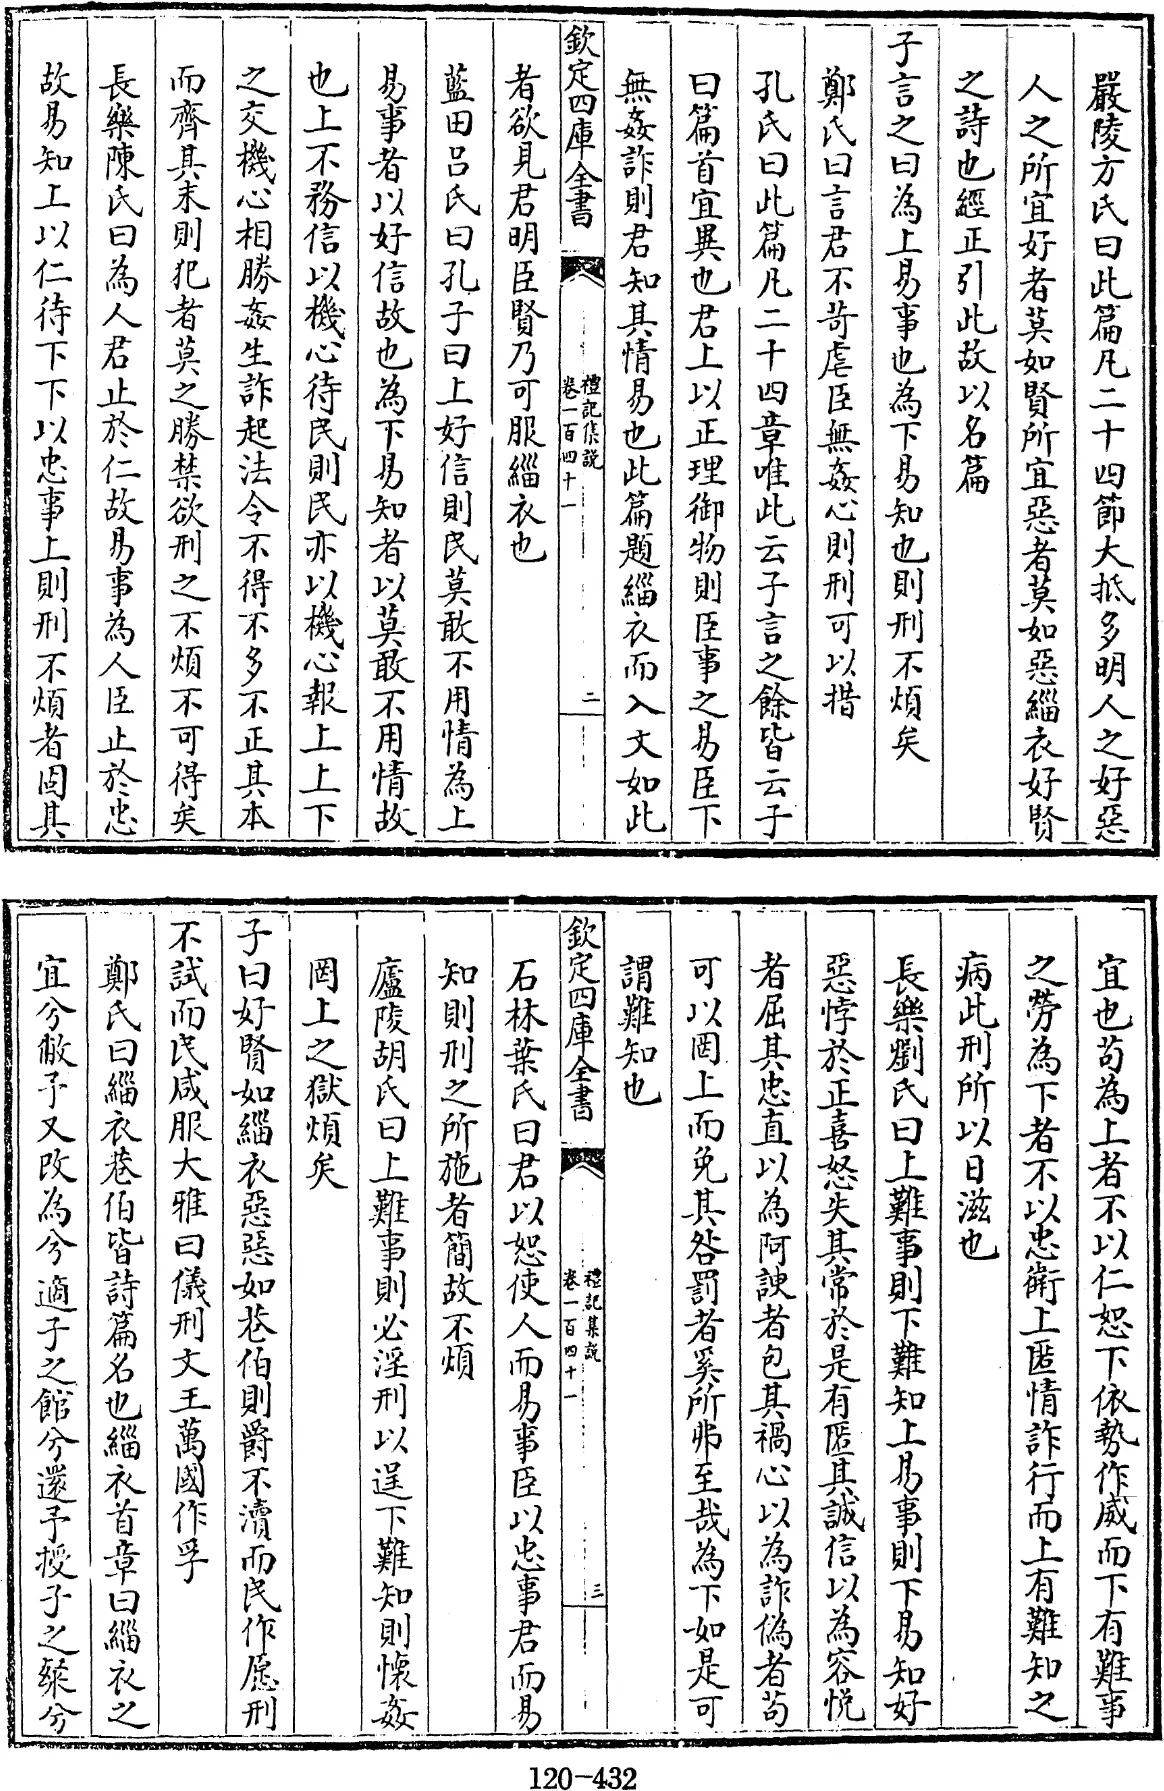 嚴陵方氏曰此篇凡二十四節大抵多明人之好惡
人之所宜好者莫如賢所宜惡者莫如惡緇衣好賢
之詩也經正引此故以名篇
子言之曰為上易事也為下易知也則刑不煩矣
鄭氏曰言君不苛虐臣無姦心則刑可以措
孔氏曰此篇凡二十四章唯此云子言之餘皆云子
曰篇首宜異也君上以正理御物則臣事之易臣下
無姦詐則君知其情易也此篇題緇衣而入文如此
欽定四庫全書
禮記集説
卷一百四十一
二
者欲見君明臣賢乃可服緇衣也
藍田呂氏曰孔子曰上好信則民莫敢不用情為上
易事者以好信故也為下易知者以莫敢不用情故
也上不務信以機心待民則民亦以機心報上上下
之交機心相勝姦生詐起法令不得不多不正其本
而齊其末則犯者莫之勝禁欲刑之不煩不可得矣
長樂陳氏曰為人君止於仁故易事為人臣止於忠
故易知上以仁待下下以忠事上則刑不煩者固其
宜也苟為上者不以仁恕下依勢作威而下有難事
之勞為下者不以忠衛上匿情詐行而上有難知之
病此刑所以日滋也
長樂劉氏曰上難事則下難知上易事則下易知好
惡悖於正喜怒失其常於是有匿其誠信以為容悦
者屈其忠直以為阿諛者包其禍心以為詐僞者苟
可以罔上而免其咎罰者奚所弗至哉為下如是可
謂難知也
欽定四庫全書
禮記集説
卷一百四十一
三
石林葉氏曰君以恕使人而易事臣以忠事君而易
知則刑之所施者簡故不煩
廬陵胡氏曰上難事則必淫刑以逞下難知則懷姦
罔上之獄煩矣
子曰好賢如緇衣惡惡如巷伯則爵不瀆而民作愿刑
不試而民咸服大雅曰儀刑文王萬國作孚
鄭氏曰緇衣巷伯皆詩篇名也緇衣首章曰緇衣之
宜兮敝予又改為兮適子之館兮還予授子之粲兮
120-432